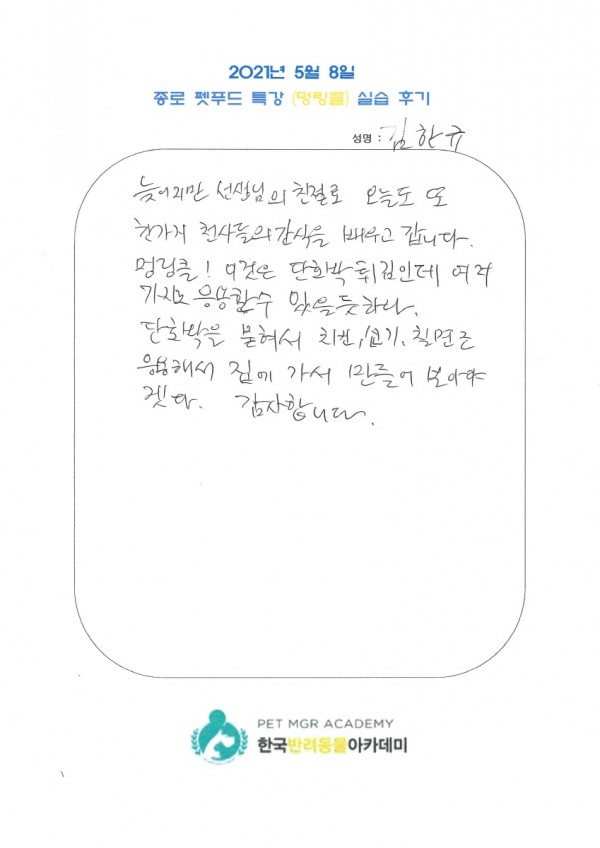 2021년 5월 8일
종로 펫푸드 특강 (멍링클) 실습 후기
성명 : 김한규
늦어지만 선생님의 친절로 오늘도 또
한가지 천사들의 간식을 배우고 갑니다.
멍링클! 이것은 단화박 튀김인데 여러
가지로 응용할수 있을듯하다.
단화박을 묻혀서 치킨, 칠면조
응용해서 집에 가서 만들어 보아야
겟다. 감사합니다.
PET MGR ACADEMY
한국반려동물아카데미